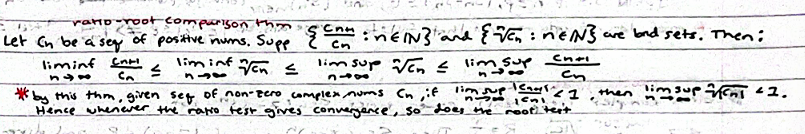 ratio-root comparison thm
Let Cn be a seq of positive nums. Supp { Cn+1/Cn : n ∈ ℕ } and { ⁿ√Cn : n ∈ ℕ } are bnd sets. Then:
liminf n→∞ Cn+1/Cn ≤ liminf n→∞ ⁿ√Cn ≤ limsup n→∞ ⁿ√Cn ≤ limsup n→∞ Cn+1/Cn
* by this thm, given seq of non-zero complex nums Cn, if limsup n→∞ |Cn+1|/|Cn| < 1, then limsup n→∞ ⁿ√|Cn| < 1.
Hence whenever the ratio test gives convergence, so does the root test